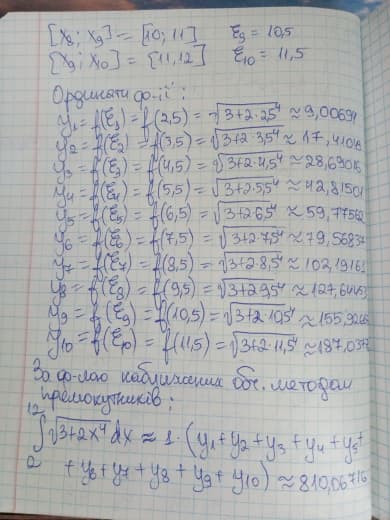 [x₈; x₉] = [10; 11] ξ₉ = 10,5
[x₉; x₁₀] = [11, 12] ξ₁₀ = 11,5
Ординати ф-ії:
y₁ = f(ξ₁) = f(2,5) = √3+2·2,5⁴ ≈ 9,00694
y₂ = f(ξ₂) = f(3,5) = √3+2·3,5⁴ ≈ 17,41048
y₃ = f(ξ₃) = f(4,5) = √3+2·4,5⁴ ≈ 28,69016
y₄ = f(ξ₄) = f(5,5) = √3+2·5,5⁴ ≈ 42,81501
y₅ = f(ξ₅) = f(6,5) = √3+2·6,5⁴ ≈ 59,77562
y₆ = f(ξ₆) = f(7,5) = √3+2·7,5⁴ ≈ 79,56837
y₇ = f(ξ₇) = f(8,5) = √3+2·8,5⁴ ≈ 102,19161
y₈ = f(ξ₈) = f(9,5) = √3+2·9,5⁴ ≈ 127,64453
y₉ = f(ξ₉) = f(10,5) = √3+2·10,5⁴ ≈ 155,9266
y₁₀ = f(ξ₁₀) = f(11,5) = √3+2·11,5⁴ ≈ 187,0374
За ф-лою наближених обч. методом
прямокутників:
12
∫ √3+2x⁴ dx ≈ 1·(y₁+y₂+y₃+y₄+y₅+
2 +y₆+y₇+y₈+y₉+y₁₀) ≈ 810,06716